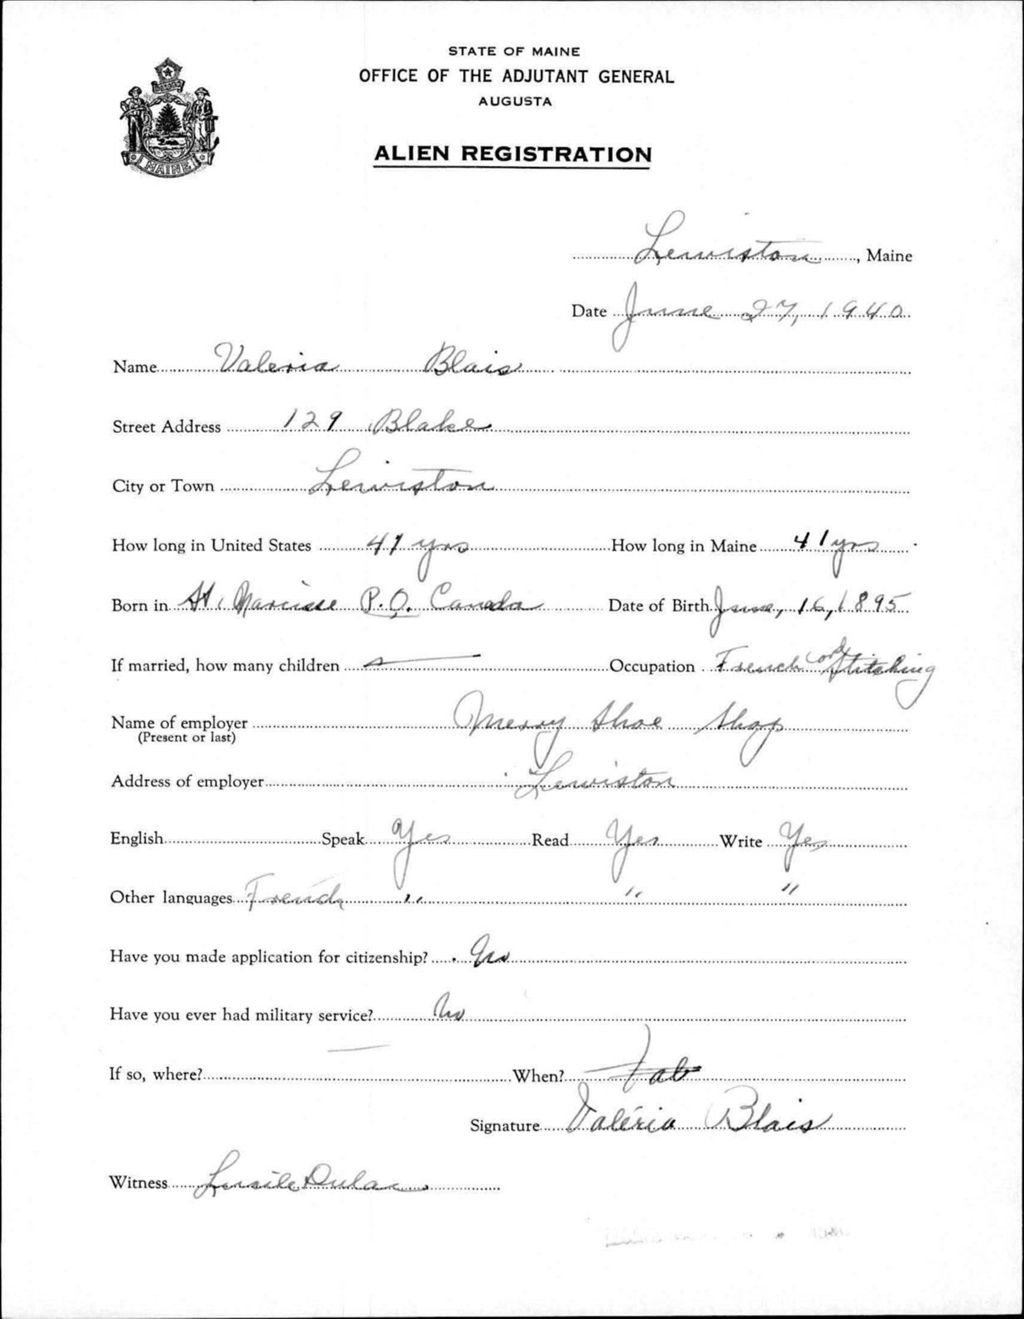 STATE OF MAINE
OFFICE OF THE ADJUTANT GENERAL
AUGUSTA
ALIEN REGISTRATION
MAINE
Lewiston, Maine
Date June 27, 1940
Name Valeria Blais
Street Address 129 Blake
City or Town Lewiston
How long in United States 41 yrs How long in Maine 41 yrs
Born in St. Narcisse P.Q. Canada Date of Birth June, 16, 1895
If married, how many children — Occupation French cord Stitching
Name of employer Merry Shoe Shop
(Present or last)
Address of employer Lewiston
English Speak Yes Read Yes Write Yes
Other languages French " " "
Have you made application for citizenship? No
Have you ever had military service? No
If so, where? — When?
Signature Valéria Blais
Witness Lucile Dulac